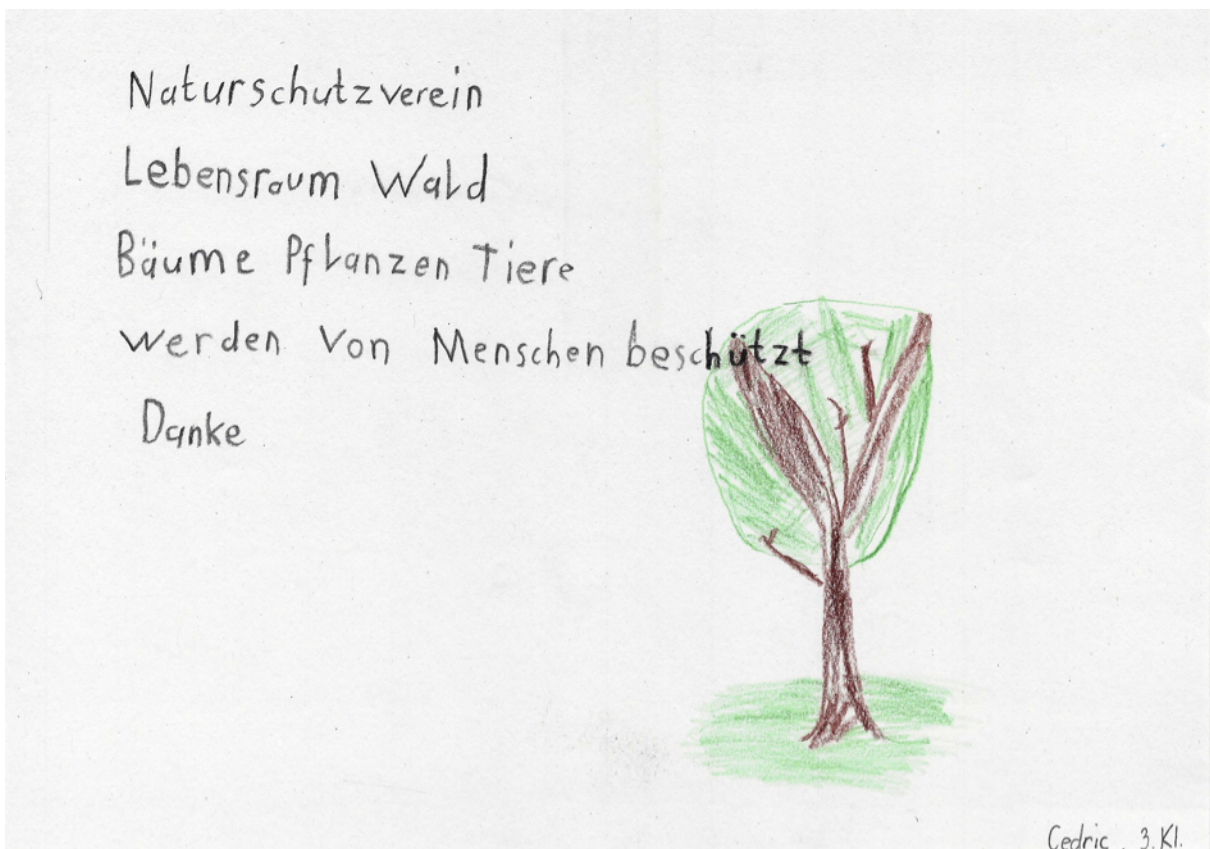 Naturschutzverein
Lebensraum Wald
Bäume Pflanzen Tiere
werden von Menschen beschützt
Danke
Cedric, 3. Kl.